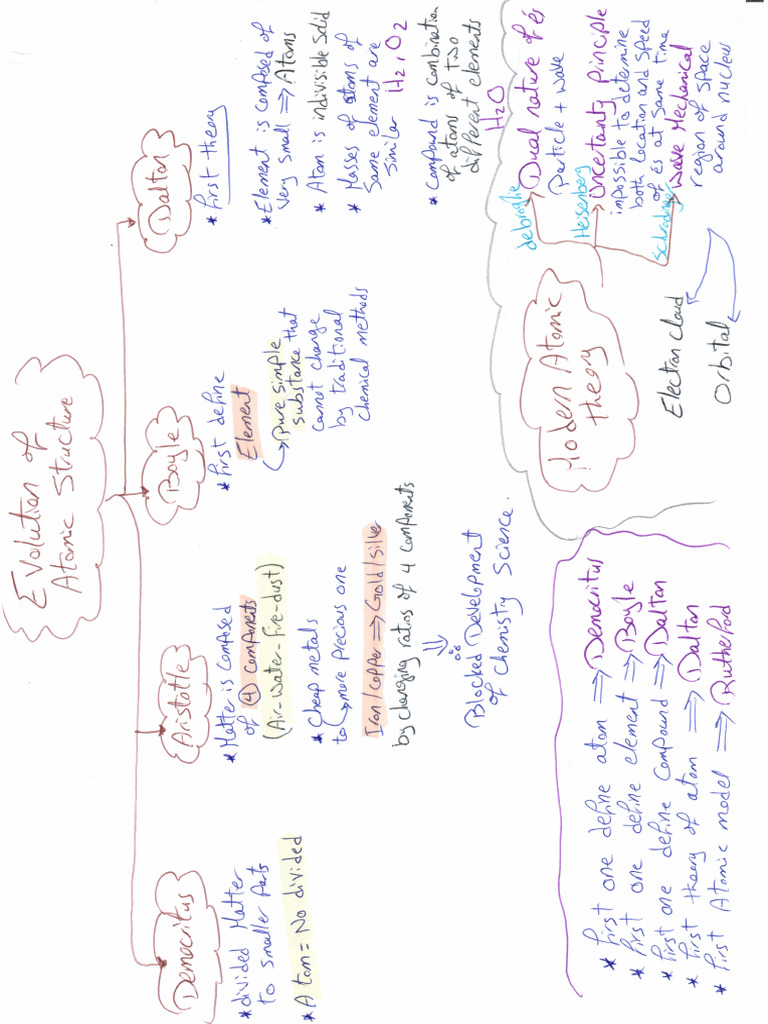 Evolution of
Atomic Structure
Democritus
* divided Matter
to smaller Parts
* Atom = No divided
Aristotle
* Matter is composed
of ④ components
(Air-water-fire-dust)
* Cheap metals
to → more precious one
Iron/copper ⇒ Gold/silver
by changing ratios of 4 components
⇓
Blocked Development
of Chemistry Science.
Boyle
* first define
Element
→ Pure simple
substance that
cannot change
by traditional
chemical methods
Dalton
* first theory
* Element is composed of
very small ⇒ Atoms
* Atom is indivisible solid
* Masses of atoms of
Same element are
similar H2, O2
* Compound is combination
of atoms of two
different elements
H2O
* first one define atom ⇒ Democritus
* first one define element ⇒ Boyle
* first one define compound ⇒ Dalton
* first theory of atom ⇒ Dalton
* first Atomic model ⇒ Rutherford
Modern Atomic
theory
debroglie
Dual nature of es
Particle + wave
Heisenberg
Uncertainty principle
impossible to determine
both location and speed
of es at same time
Schrodinger
wave Mechanical
region of space
around nucleus
Electron cloud
Orbital